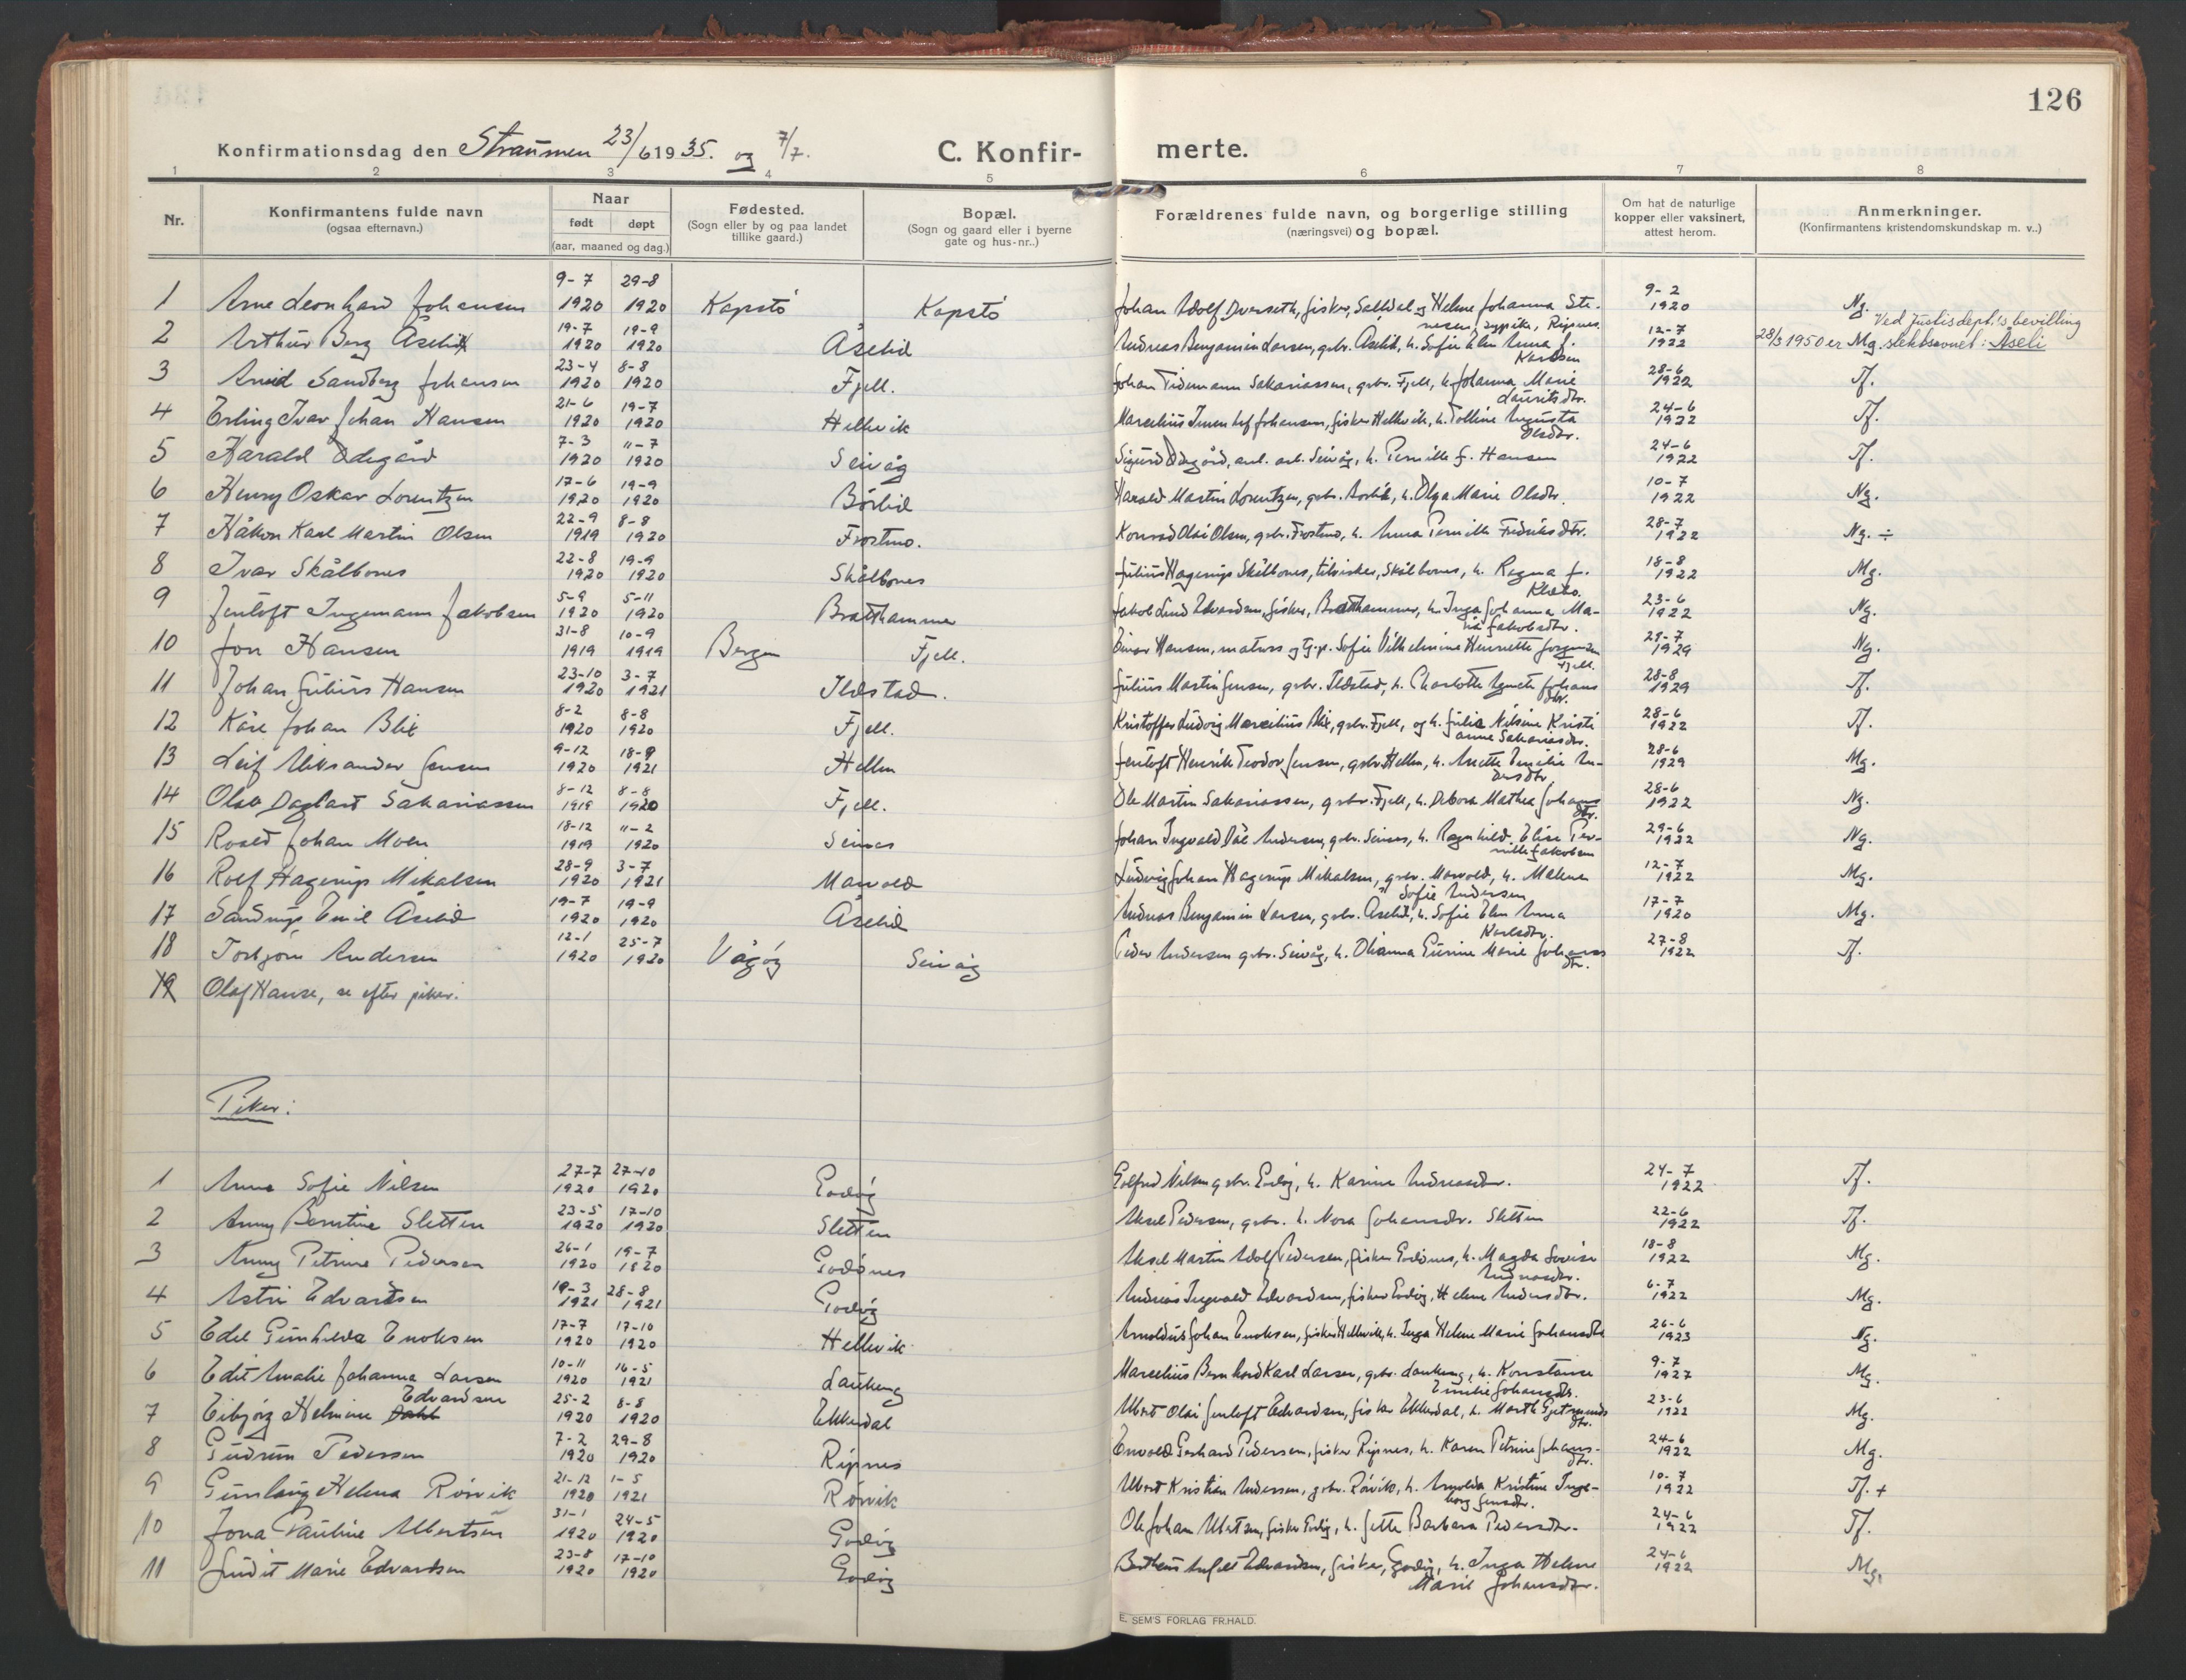 126
Konfirmationsdag den Straumen 23/6 1935. og 7/7. C. Konfirmerte.
1 2 3 4 5 6 7 8
Nr. Konfirmantens fulde navn (ogsaa efternavn.) Naar født døpt (aar, maaned og dag.) Fødested. (Sogn eller by og paa landet tillike gaard.) Bopæl. (Sogn og gaard eller i byerne gate og hus-nr..) Forældrenes fulde navn, og borgerlige stilling (næringsvei) og bopæl. Om hat de naturlige kopper eller vaksinert, attest herom. Anmerkninger. (Konfirmantens kristendomskundskap m. v..)
1 Arne Leonhard Johansen 9-7 1920 29-8 1920 Kapstø Kapstø Johan Adolf fisker, og Helene Johanna 9-2 1920 Ng.
2 Arthur Berg Åselid 19-7 1920 19-9 1920 Åselid Andreas Benjamin Larsen, gbr. Åselid, h. Sofie Elen Anna f. Karlsen 12-7 1922 Mg. Ved Justisdept.'s bevilling 28/3 1950 er slektsnavnet: Åseli
3 Arvid Sandberg Johansen 23-4 1920 8-8 1920 Fjell. Johan Tidemann Sakariassen, gbr. Fjell, h. Johanna Marie Lauritsdtr. 28-6 1922 Tf.
4 Erling Ivar Johan Hansen 21-6 1920 19-7 1920 Hellvik Marcelius Johansen, fisker Hellvik, h. Augusta Olsdtr. 24-6 1922 Tf.
5 Harald Ødegård 7-3 1920 11-7 1920 Seivåg Sigurd Ødegård, anl. arb. Seivåg, h. Pernille f. Hansen 24-6 1922 Tf.
6 Henry Oskar Lorentzen 17-6 1920 19-9 1920 Børlid Harald Martin Lorentzen, gbr. h. Olga Marie Olsdtr. 10-7 1922 Ng.
7 Håkon Karl Martin Olsen 22-9 1919 8-8 1920 Frostmo. Konrad Olai Olsen, gbr. Frostmo, h. Anna Pernille Fredriksdtr. 28-7 1922 Ng. ÷
8 Ivar Skålbones 22-8 1920 19-9 1920 Skålbones Julius Hagerup Skålbones, Skålbones, h. Ragna f. 18-8 1922 Mg.
9 Jentoft Ingemann Jakobsen 5-9 1920 5-11 1920 Bratthammer Jakob Lind Edvardsen, fisker, Bratthammer, h. Inga Johanna Maria Jakobsdtr. 23-6 1922 Ng.
10 Jon Hansen 31-8 1919 10-9 1919 Bergen Fjell. Einar Hansen, matros og Sofie Vilhelmine Henriette Jørgensen Fjell. 29-7 1929 Ng.
11 Johan Julius Hansen 23-10 1920 3-7 1921 Ildstad. Julius Martin Jensen, gbr. Ildstad, h. Charlotte Agnete Johansdtr. 28-8 1929 Tf.
12 Kåre Johan Blix 8-2 1920 8-8 1920 Fjell. Kristoffer Ludvig Marcelius Blix, gbr. Fjell, og h. Julie Nilsine Kristianne Sakariasdtr. 28-6 1922 Tf.
13 Leif Aleksander Jensen 9-12 1920 18-9 1921 Hellen Jentoft Henrik Teodor Jensen, gbr. Hellen, h. Anette Emilie Andersdtr. 28-6 1929 Mg.
14 Olav Dagfart Sakariassen 8-12 1919 8-8 1920 Fjell. Ole Martin Sakariassen, gbr. Fjell, h. Debora Mathea Johansdtr. 28-6 1922 Ng.
15 Roald Johan Moen 18-12 1919 11-2 1920 Seines Johan Ingvald Andersen, gbr. Seines, h. Ragnhild Elise Pernille Jakobsen 29-6 1922 Ng.
16 Rolf Hagerup Mikalsen 28-9 1920 3-7 1921 Marvold Ludvig Johan Hagerup Mikalsen, gbr. Marvold, h. Malene Sofie Andersen 12-7 1922 Mg.
17 Sandrup Emil Åselid 19-7 1920 19-9 1920 Åselid Andreas Benjamin Larsen, gbr. Åselid, h. Sofie Elen Anna Karlsdtr. 17-7 1920 Mg.
18 Torbjørn Andersen 12-1 1920 25-7 1920 Vågøy Seivåg Peder Andersen gbr. Seivåg, h. Marie Johansdtr. 27-8 1922 Tf.
19 Olaf Hanse, se efter piker.
Piker:
1 Anna Sofie Nilsen 27-7 1920 27-10 1920 Godøy Golfred Nilsen gbr. Godøy, h. Karine Andreasdtr. 24-7 1922 Tf.
2 Anny Berntine Sletten 23-5 1920 17-10 1920 Sletten Aksel Pedersen, gbr. h. Nora Johansdtr. Sletten 22-6 1922 Tf.
3 Anny Petrine Pedersen 26-1 1920 19-7 1820 Godønes Aksel Martin Adolf Pedersen, fisker Godønes, h. Magda Lovise Andreasdtr. 18-8 1922 Mg.
4 Astri Edvardsen 19-3 1921 28-8 1921 Godøy Andreas Ingvald Edvardsen, fisker Godøy, Helene Andersdtr. 6-7 1922 Mg.
5 Edel Gunhilda Enoksen 17-7 1920 17-10 1920 Hellvik Arnoldus Johan Enoksen, fisker Hellvik, h. Inga Helene Marie Johansdtr 26-6 1923 Ng.
6 Edit Amalie Johanna Larsen 10-11 1920 16-5 1921 Laukeng Marcelius Bernhard Karl Larsen, gbr. Laukeng, h. Konstanse Emilie Johansdtr. 9-7 1927 Mg.
7 Eibjørg Helmine Dahl Edvardsen 25-2 1920 8-8 1920 Ekkerdal Albert Olai Jentoft Edvardsen, fisker Ekkerdal, h. Marth 23-6 1922 Mg.
8 Gudrun Pedersen 7-2 1920 29-8 1920 Ripnes Envold Gerhard Pedersen, fisker Ripnes, h. Karen Petrine Johansdtr. 24-6 1922 Mg.
9 Gunlaug Helena Rørvik 21-12 1920 1-5 1921 Rørvik Albert Kristian Andersen, gbr. Rørvik, h. Arnolda Kristine Ingeborg Jensdtr. 10-7 1922 Tf. +
10 Jona Pauline Albertsen 31-1 1920 24-5 1920 Godøy Ole Johan Albertsen, fisker Godøy, h. Jette Barbara Pedersdtr. 24-6 1922 Tf.
11 Judit Marie Edvardsen 23-8 1920 17-10 1920 Godøy Edvardsen, fisker, Godøy, h. Inga Helene Marie Johansdtr. 24-6 1922 Mg.
E. SEM'S FORLAG FR.HALD.